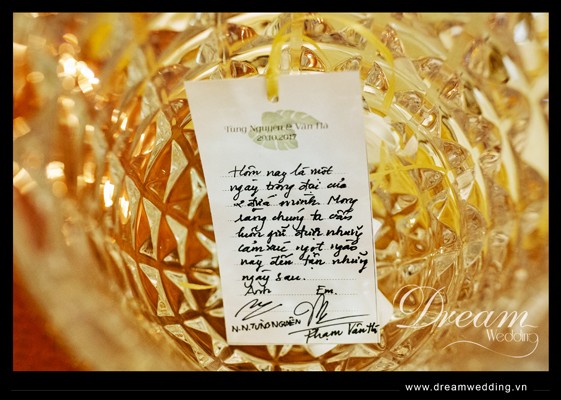 Tùng Nguyên & Vân Hà
29.10.2017
Hôm nay là một
ngày trọng đại của
2 đứa mình. Mong
rằng chúng ta vẫn
luôn giữ được những
cảm xúc ngọt ngào
này đến tận những
ngày sau.
Anh Em.
N.N.TÙNG NGUYÊN
Phạm Vân Hà
Dream
Wedding
www.dreamwedding.vn